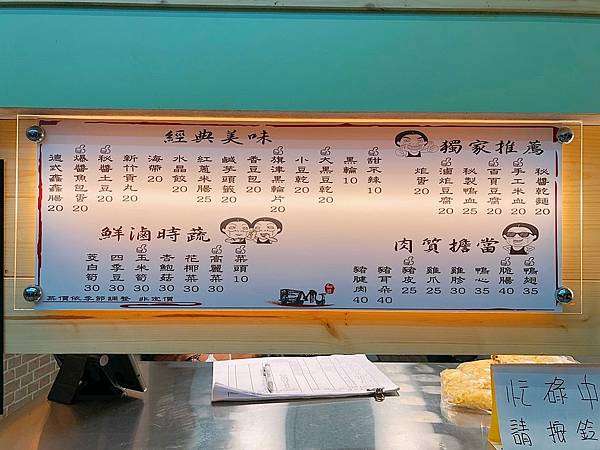 獨家推薦
秘醬乾麵 20
手工米血 20
百頁豆腐 20
秘製鴨血 25
滷炸豆腐 20
炸蛋 20
經典美味
甜不辣 10
黑輪 10
大黑豆乾 20
小豆乾 20
旗津黑輪片 20
香豆包 20
鹹芋頭籤 20
紅蔥米腸 25
水晶餃 20
海帶 20
新竹貢丸 20
秘醬土豆 20
爆醬魚包蛋 20
德式鑫鑫腸 20
肉質擔當
鴨翅 35
脆腸 40
鴨心 35
雞胗 30
雞爪 25
豬皮 25
豬耳朵 40
豬腱肉 40
鮮滷時蔬
菜頭 10
高麗菜 30
花椰菜 30
杏鮑菇 30
玉米筍 30
四季豆 30
茭白筍 30
菜價依季節調整 非定價
忙碌中
請按鈴